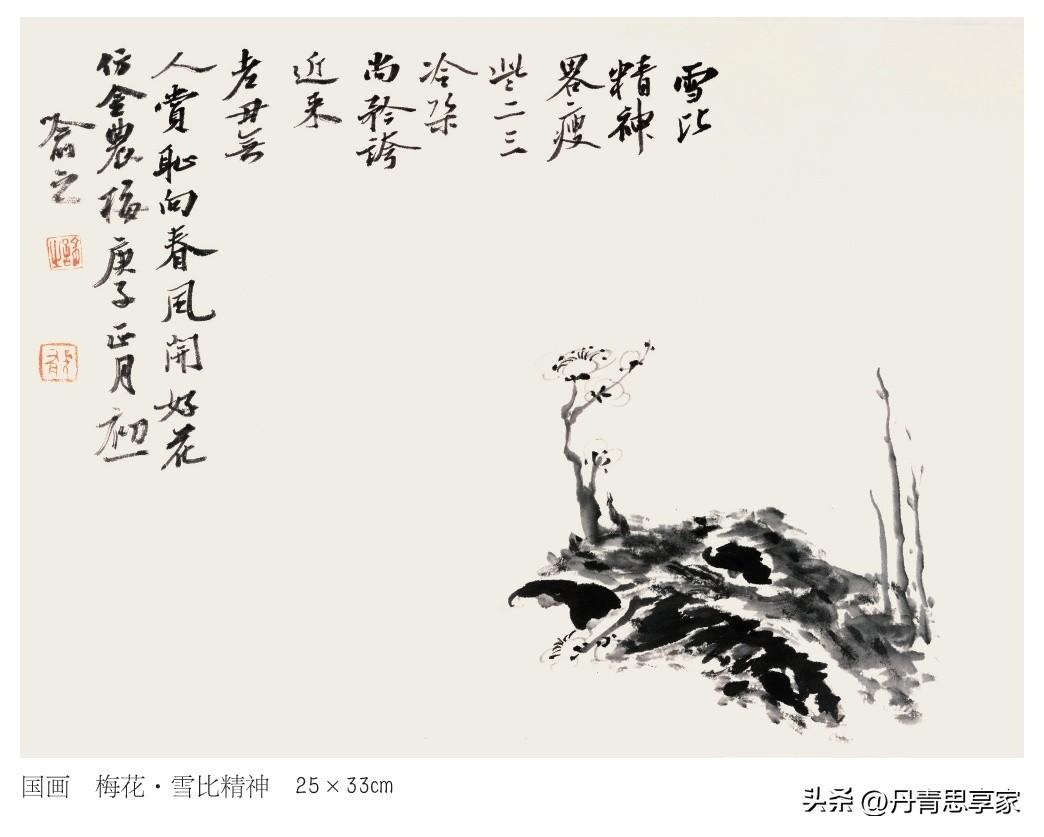 雪比
精神
畧瘦
些二三
冷朵
尚矜誇
近来
老丑無
人賞恥向春風開好花
仿金農梅庚子正月初一
喻之
国画 梅花·雪比精神 25×33cm
头条 @丹青思享家